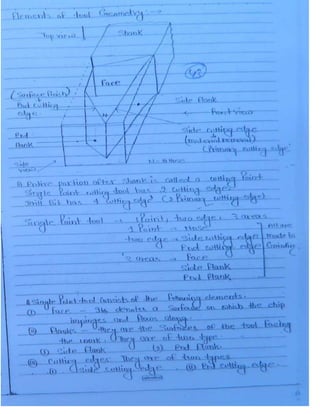 Elements of tool Geometry:→
Top view
Shank
Face
(Surface finish)
End cutting
edge
Side Flank
Front view
End
flank
Side cutting edge
(material removal)
(Primary cutting edge)
Side
view
N = Nose
Entire portion after shank is called a cutting Point
Single Point cutting tool has 2 cutting edge
Drill Bit has 4 cutting edge (2 Primary cutting edge)
Single Point tool → 1 Point, two edge, 3 areas
1 Point → Nose
two edge → Side cutting edge
End cutting edge
3 areas → Face
Side Flank
End Flank
All are
to
Grinding
Single Point tool consists of the following elements.
(i) Face → It denotes a Surface on which the chip
impinges and flows along.
(ii) Flanks → They are the Surfaces of the tool facing
the work. They are of two type
(i) Side Flank (2) End Flank.
(iii) Cutting edges: They are of two types
(i) Side cutting edge (ii) End cutting edge.